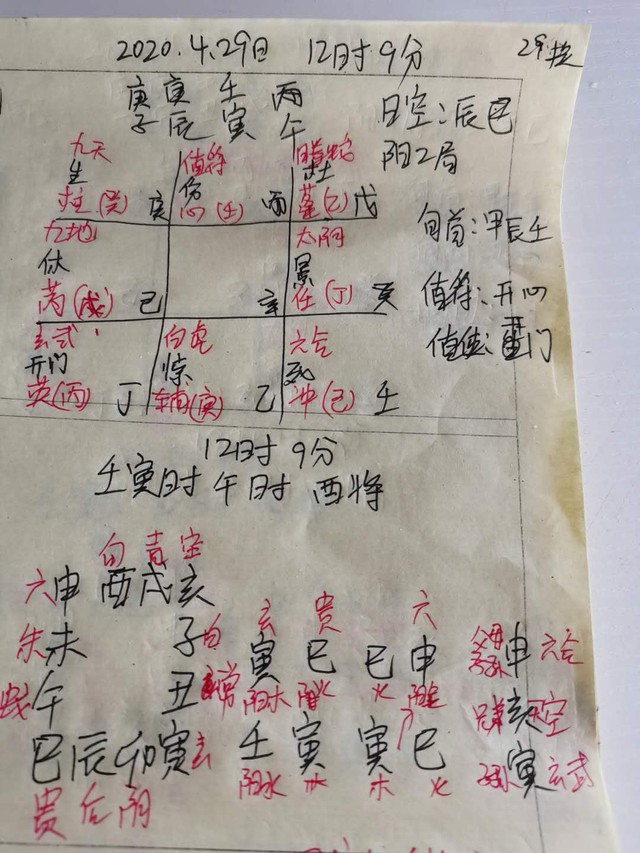 2020.4.29日 12时9分
庚 寅 壬 丙
子 辰 寅 午
日空:辰巳
阳2局
旬首:甲辰壬
值符:开心
九天
生
柱(癸) 庚
值符
伤
心(壬) 丙
杜
蓬(乙) 戊
九地
休
芮(戊) 己
辛
太阴
景
任(丁) 癸
玄武
开门
英(丙) 丁
白虎
惊
辅(庚) 乙
六合
死
冲(己) 壬
12时9分
壬寅时 午时 酉将
白 青 空
六 申 酉 戌 亥
朱 未 子 白
午 丑 常
巳 辰 卯 寅 玄
贵 后 阴
玄 贵 六
寅 巳 巳 申
阳木 火
壬 寅 寅 巳
阳水 木 木 火
父母 申 六合
亥 空
寅 玄武